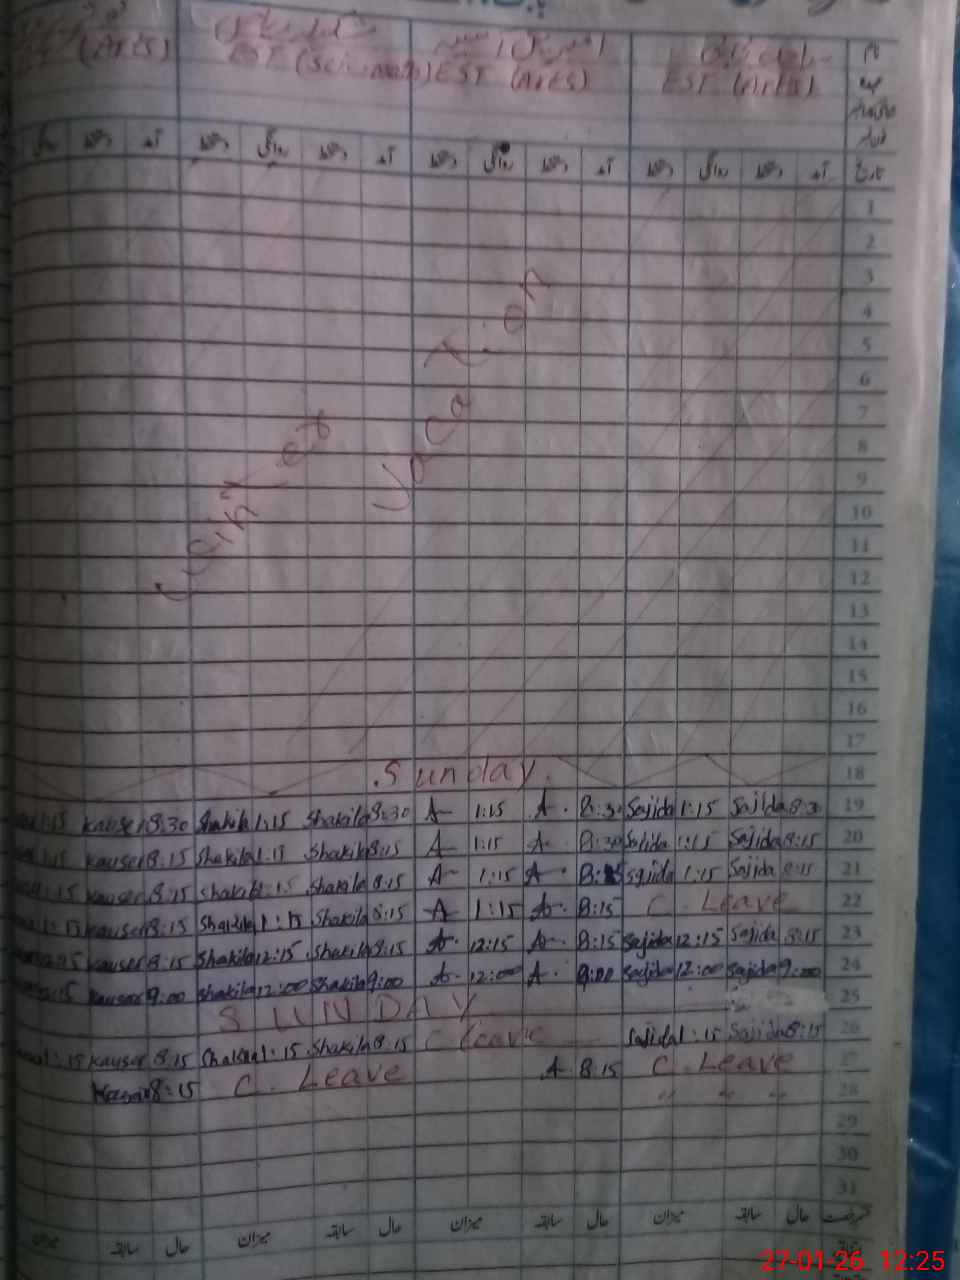 (Arts) EST (Sci-math) EST (Arts) EST (Arts)
نام
عہدہ
روانگی دستخط آمد دستخط روانگی دستخط آمد دستخط روانگی دستخط آمد دستخط روانگی دستخط آمد تاریخ
1
2
3
4
5
6
7
8
9
10
11
12
13
14
15
16
17
Winter Vacation
Sunday 18
1:15 Kauser 8:30 Shakila 1:15 Shakila 8:30 A 1:15 A. 8:30 Sajida 1:15 Sajida 8:3 19
1:15 Kauser 8:15 Shakila 1:15 Shakila 8:15 A 1:15 A 8:30 Sajida 1:15 Sajida 8:15 20
1:15 Kauser 8:15 Shakila 1:15 Shakila 8:15 A 1:15 A. 8:15 Sajida 1:15 Sajida 8:15 21
1:15 Kauser 8:15 Shakila 1:15 Shakila 8:15 A 1:15 A. 8:15 C. Leave 22
Kauser 8:15 Shakila 12:15 Shakila 8:15 A. 12:15 A. 8:15 Sajida 12:15 Sajida 8:15 23
Kauser 9:00 Shakila 12:00 Shakila 9:00 A. 12:00 A. 9:00 Sajida 12:00 Sajida 9:00 24
SUNDAY 25
1:15 Kauser 8:15 Shakila 1:15 Shakila 8:15 C leave Sajida 1:15 Sajida 8:15 26
8:15 C. Leave A 8:15 C. Leave 27
" " " 28
29
30
31
میزان سابقہ حال میزان سابقہ حال میزان سابقہ حال میزان سابقہ حال
27-01-26 12:25